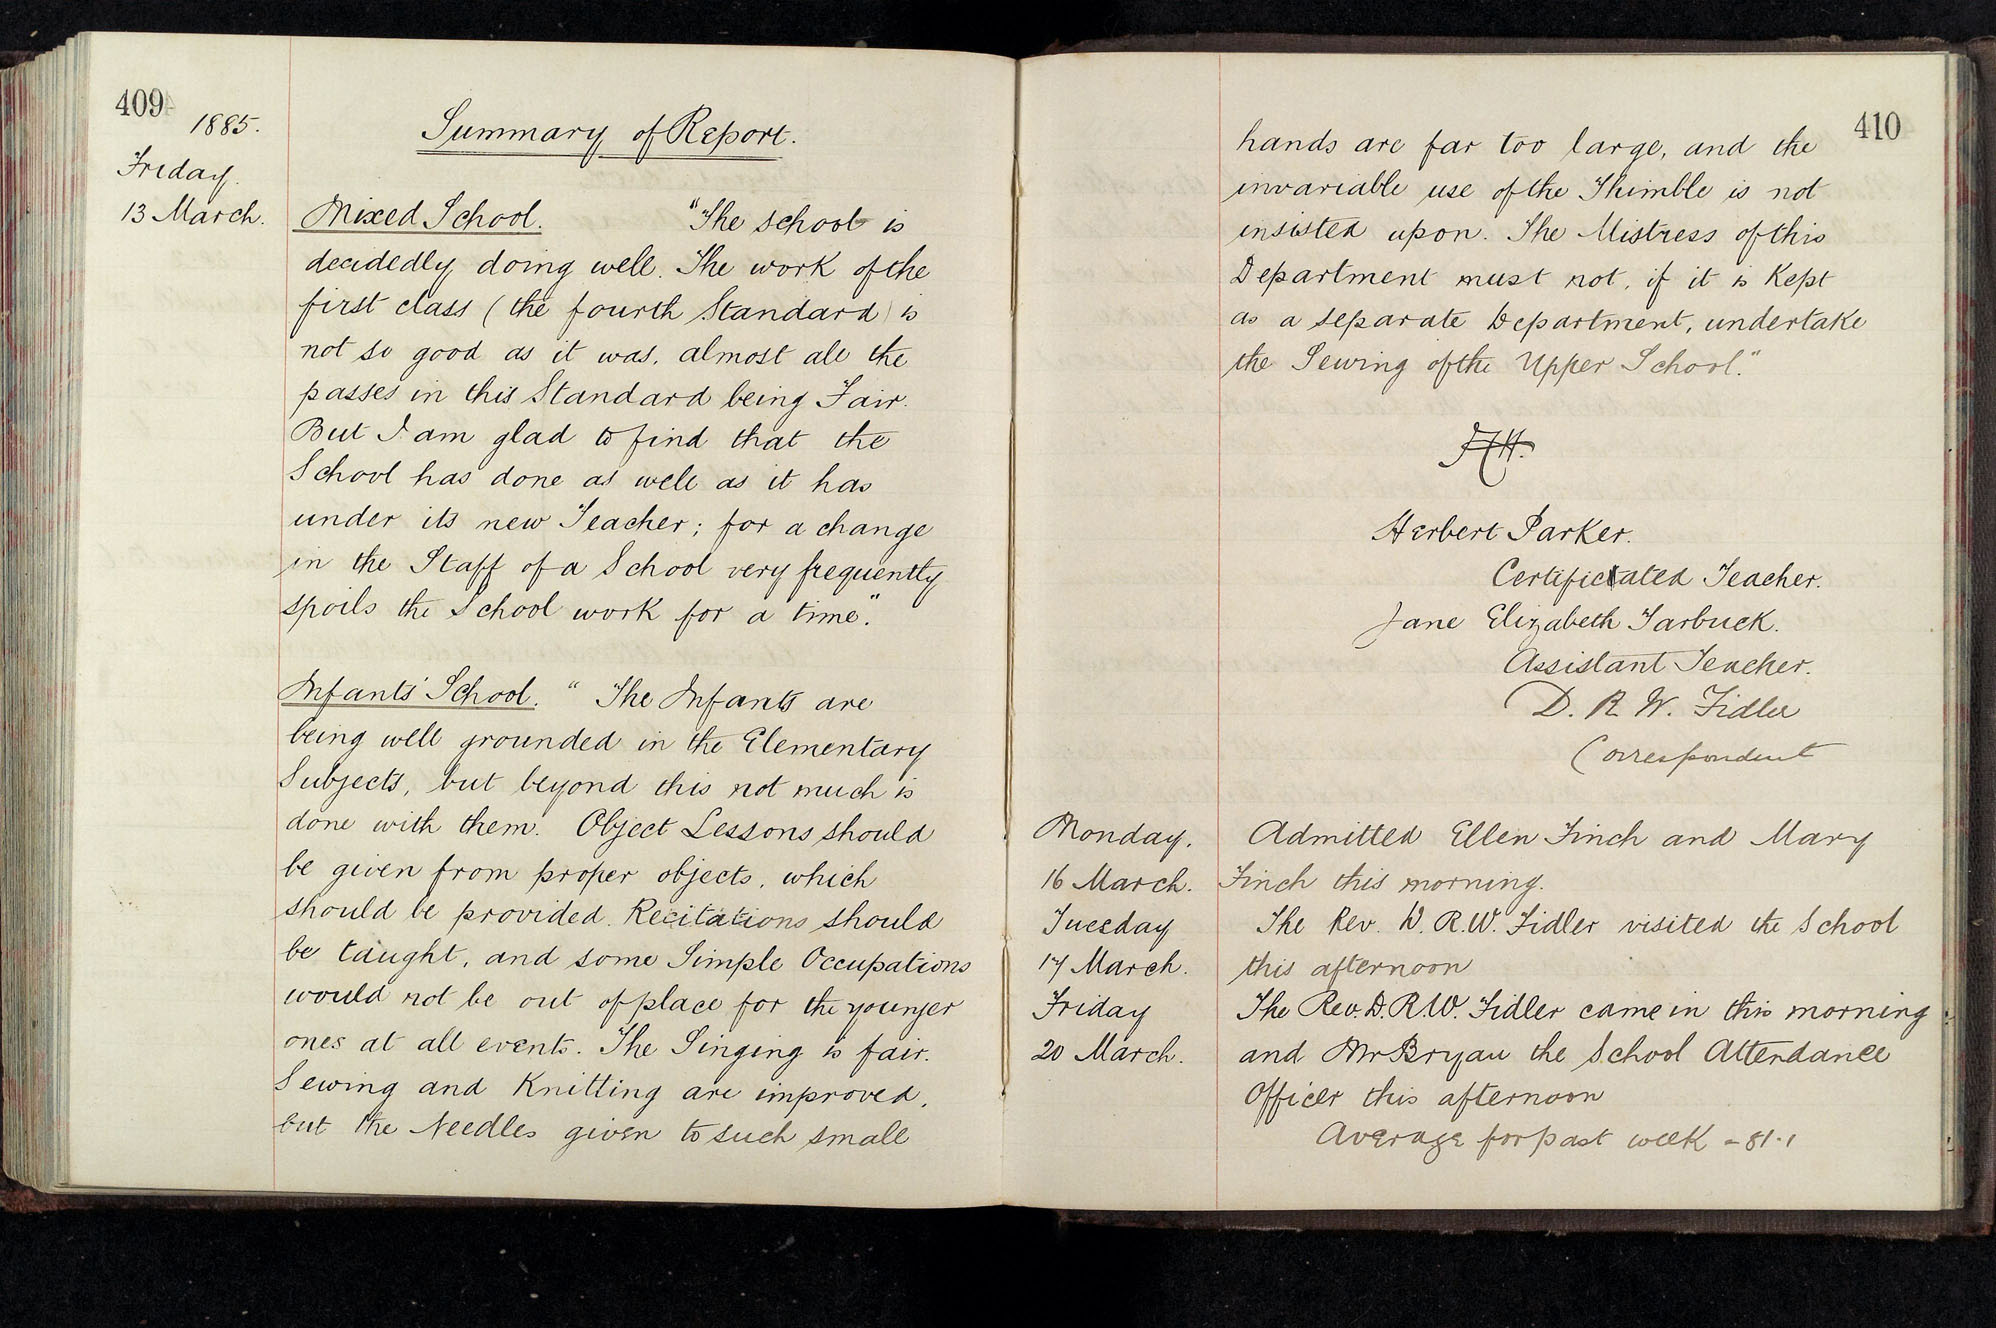 409
1885.
Friday.
13 March.
Summary of Report.
Mixed School. "The school is
decidedly doing well. The work of the
first class (the fourth Standard) is
not so good as it was, almost all the
passes in this Standard being Fair.
But I am glad to find that the
School has done as well as it has
under its new Teacher; for a change
in the Staff of a School very frequently
spoils the School work for a time."
Infants' School. " The Infants are
being well grounded in the Elementary
Subjects, but beyond this not much is
done with them. Object Lessons should
be given from proper objects, which
should be provided. Recitations should
be taught, and some Simple Occupations
would not be out of place for the younger
ones at all events. The Singing is fair.
Sewing and Knitting are improved,
but the Needles given to such small
410
hands are far too large, and the
invariable use of the Thimble is not
insisted upon. The Mistress of this
Department must not, if it is Kept
as a separate Department, undertake
the Sewing of the Upper School."
Herbert Parker.
Certificated Teacher.
Jane Elizabeth Tarbuck.
Assistant Teacher.
D. R. W. Fidler
Correspondent
Monday. Admitted Ellen Finch and Mary
16 March. Finch this morning.
Tuesday The Rev. D. R. W. Fidler visited the School
17 March. this afternoon
Friday The Rev. D. R. W. Fidler came in this morning
20 March. and Mr Bryan the School Attendance
Officer this afternoon
Average for past week = 81.1